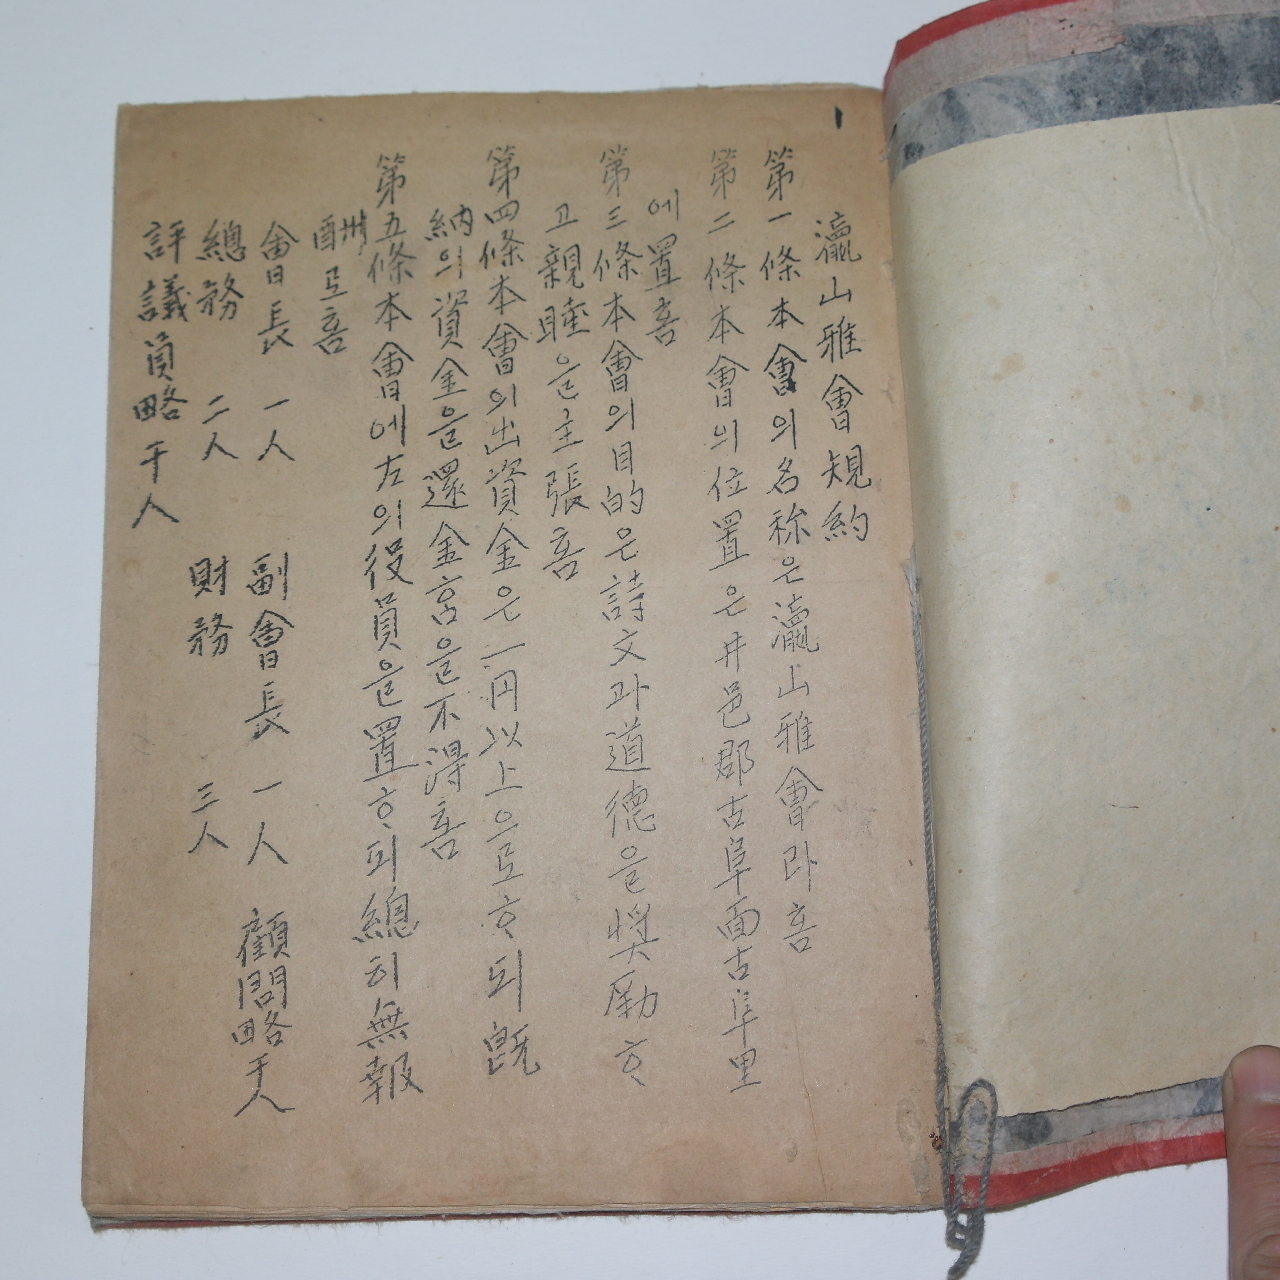 1
瀛山雅會規約
第一條本會의名称은瀛山雅會라홈
第二條本會의位置은井邑郡古阜面古阜里
에置홈
第三條本會의目的은詩文과道德을奬勵ᄒᆞ
고親睦을主張홈
第四條本會의出資金은二円以上으로ᄒᆞ되旣
納의資金을還金홈을不得홈
第五條本會에左의役員을置ᄒᆞ되總히無報
酬로홈
會長 一人 副會長 一人 顧問略干人
總務 二人 財務 三人
評議員略干人